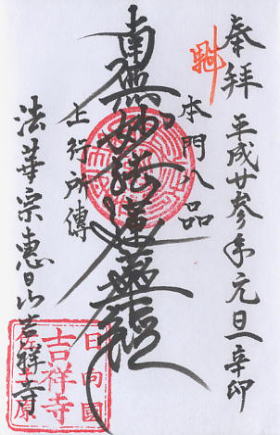 奉拝
平成廿参年元旦辛卯
本門八品
南無妙法蓮華経
上行所傳
法華宗惠日山吉祥寺
日向國
吉祥寺
佐土原